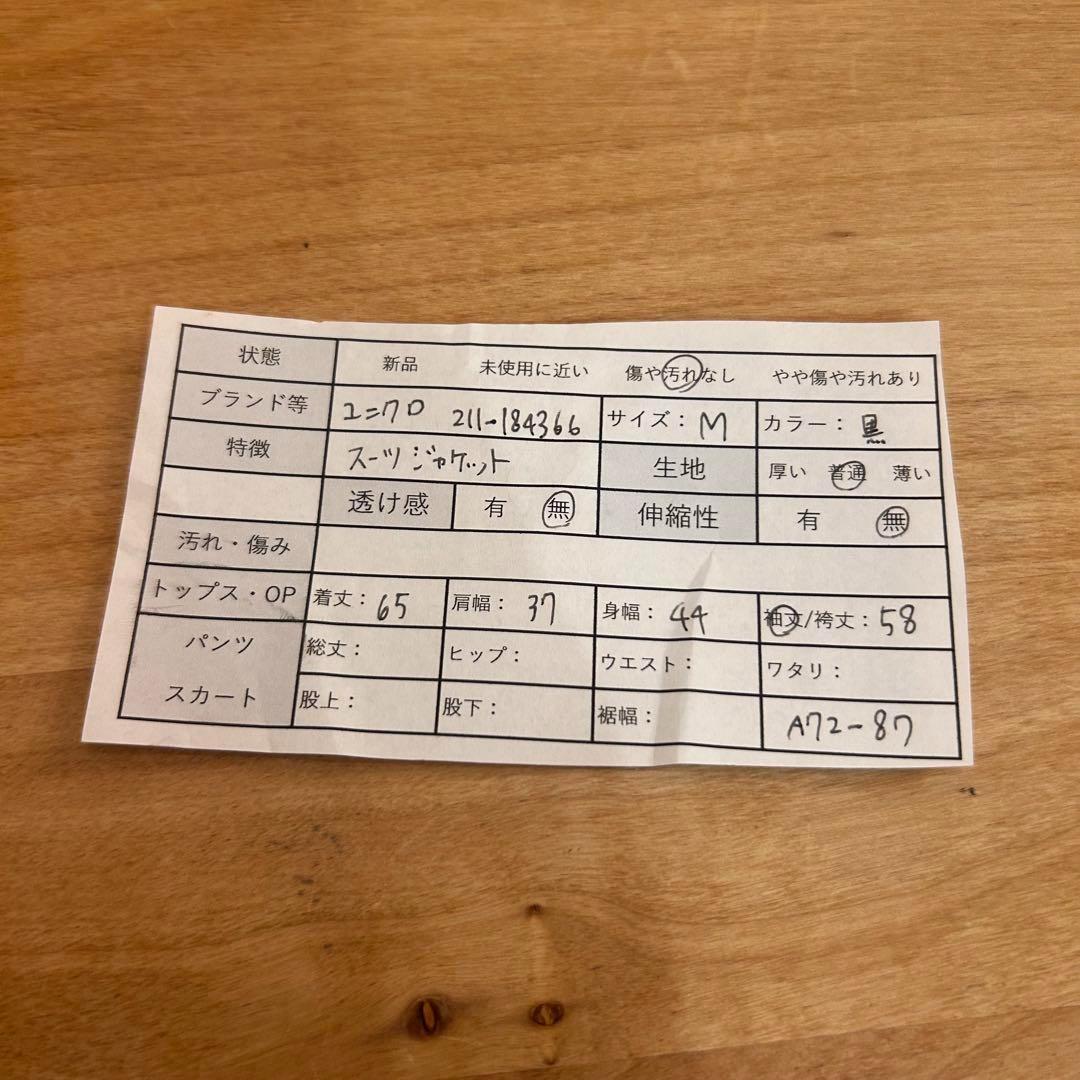 状態 新品 未使用に近い 傷や汚れなし やや傷や汚れあり
ブランド等 ユニクロ 211-184366 サイズ: M カラー: 黒
特徴 スーツジャケット 生地 厚い 普通 薄い
透け感 有 無 伸縮性 有 無
汚れ・傷み
トップス・OP 着丈: 65 肩幅: 37 身幅: 44 袖丈/袴丈: 58
パンツ 総丈: ヒップ: ウエスト: ワタリ:
スカート 股上: 股下: 裾幅: A72-87